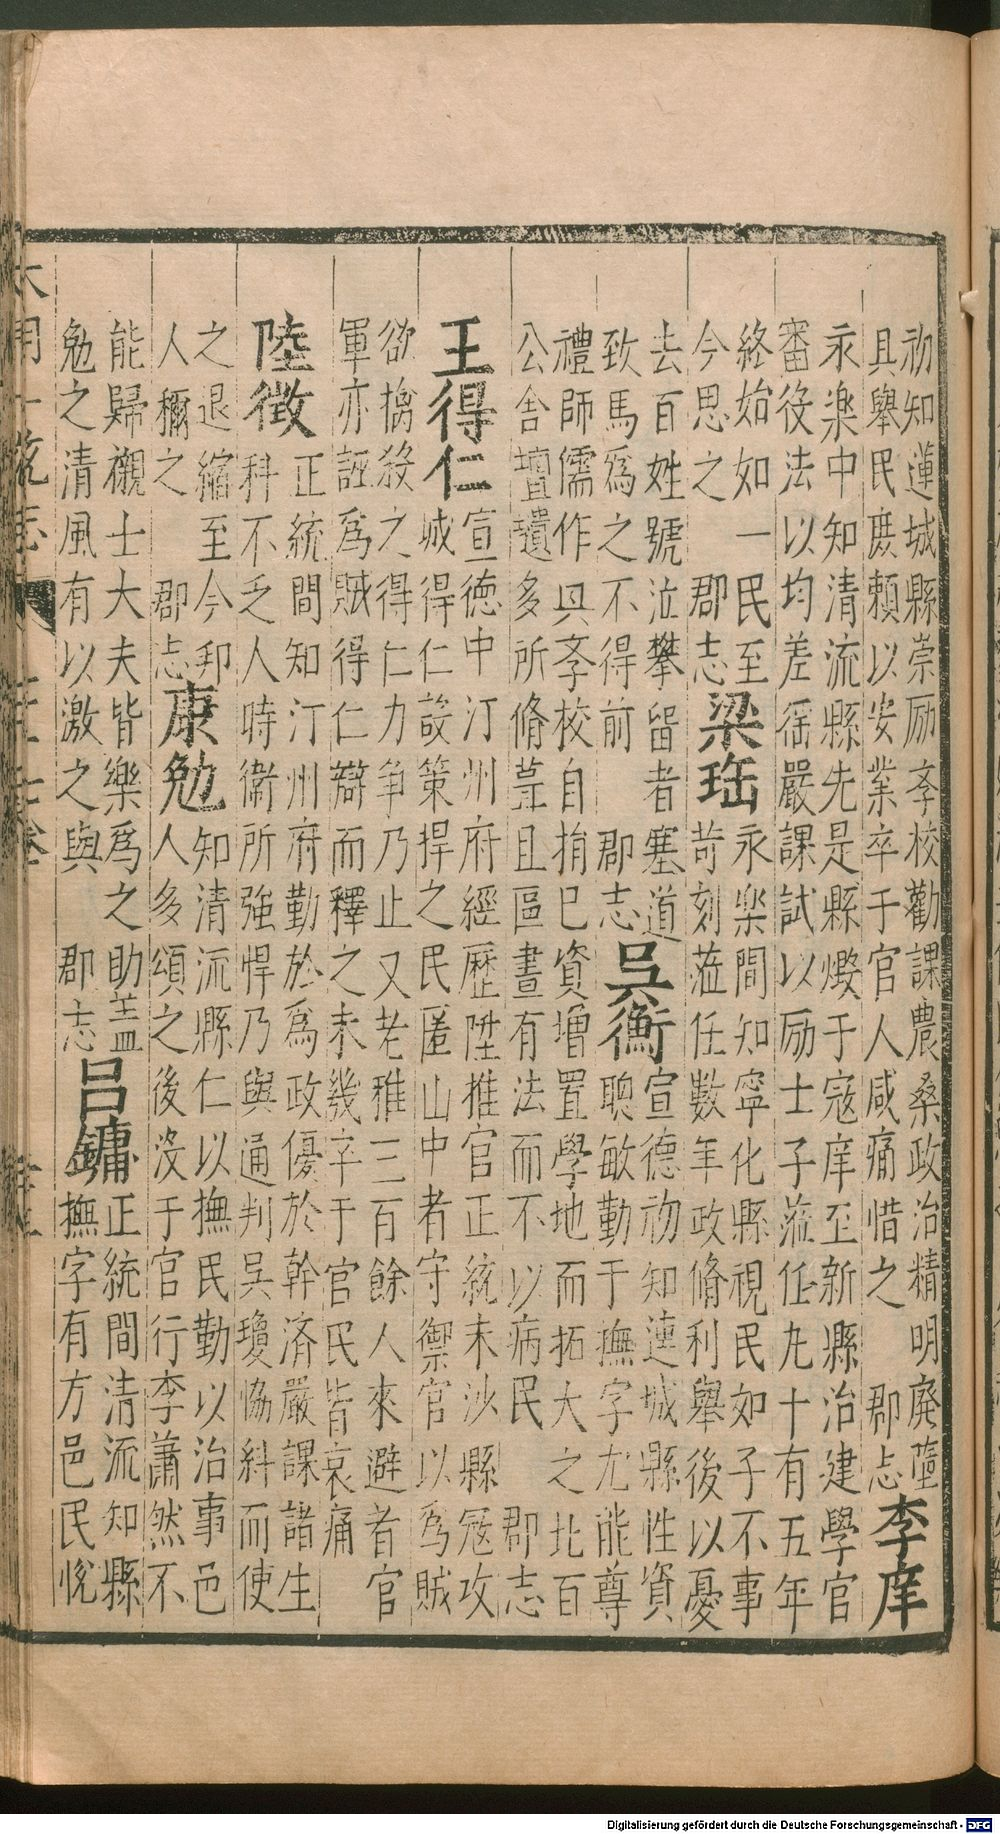 初知蓮城縣崇厲斈校勸課農桑政治精明廢墮
具舉民庶頼以安業卒于官人咸痛惜之 郡志
李庠
永樂中知清流縣先是縣燬于寇庠至新縣治建學官
審役法以均差徭嚴課試以厲士子蒞任九十有五年
終始如一民至
今思之 郡志
梁珤
永樂間知寧化縣視民如子不事
苛刻蒞任數年政脩利舉後以憂
去百姓號泣攀留者塞道
致馬爲之不得前 郡志
吳衡
宣德初知蓮城縣性資
聰敏勤于撫字尤能尊
禮師儒作具斈校自捐已資增置學地而拓大之北百
公舍壇壝多所脩葺且區畫有法而不以病民 郡志
王得仁
宣德中汀州府經歷陞推官正統末沙縣冦攻
城得仁設策捍之民匿山中者守禦官以爲賊
欲擒殺之得仁力爭乃止又老稚三百餘人來避者官
軍亦誣爲賊得仁辯而釋之未幾卒于官民皆哀痛
陸徵
正統間知汀州府勤於爲政優於幹済嚴課諸生
科不乏人時衛所強悍乃與通判吳瓊恊糾而使
之退縮至今邦
人禰之 郡志
康勉
知清流縣仁以撫民勤以治事邑
人多頌之後没于官行李蕭然不
能歸櫬士大夫皆樂爲之助蓋
勉之清風有以激之與 郡志
吕鏞
正統間清流知縣
撫字有方邑民悅
大明一統志
Digitalisierung gefördert durch die Deutsche Forschungsgemeinschaft - DFG